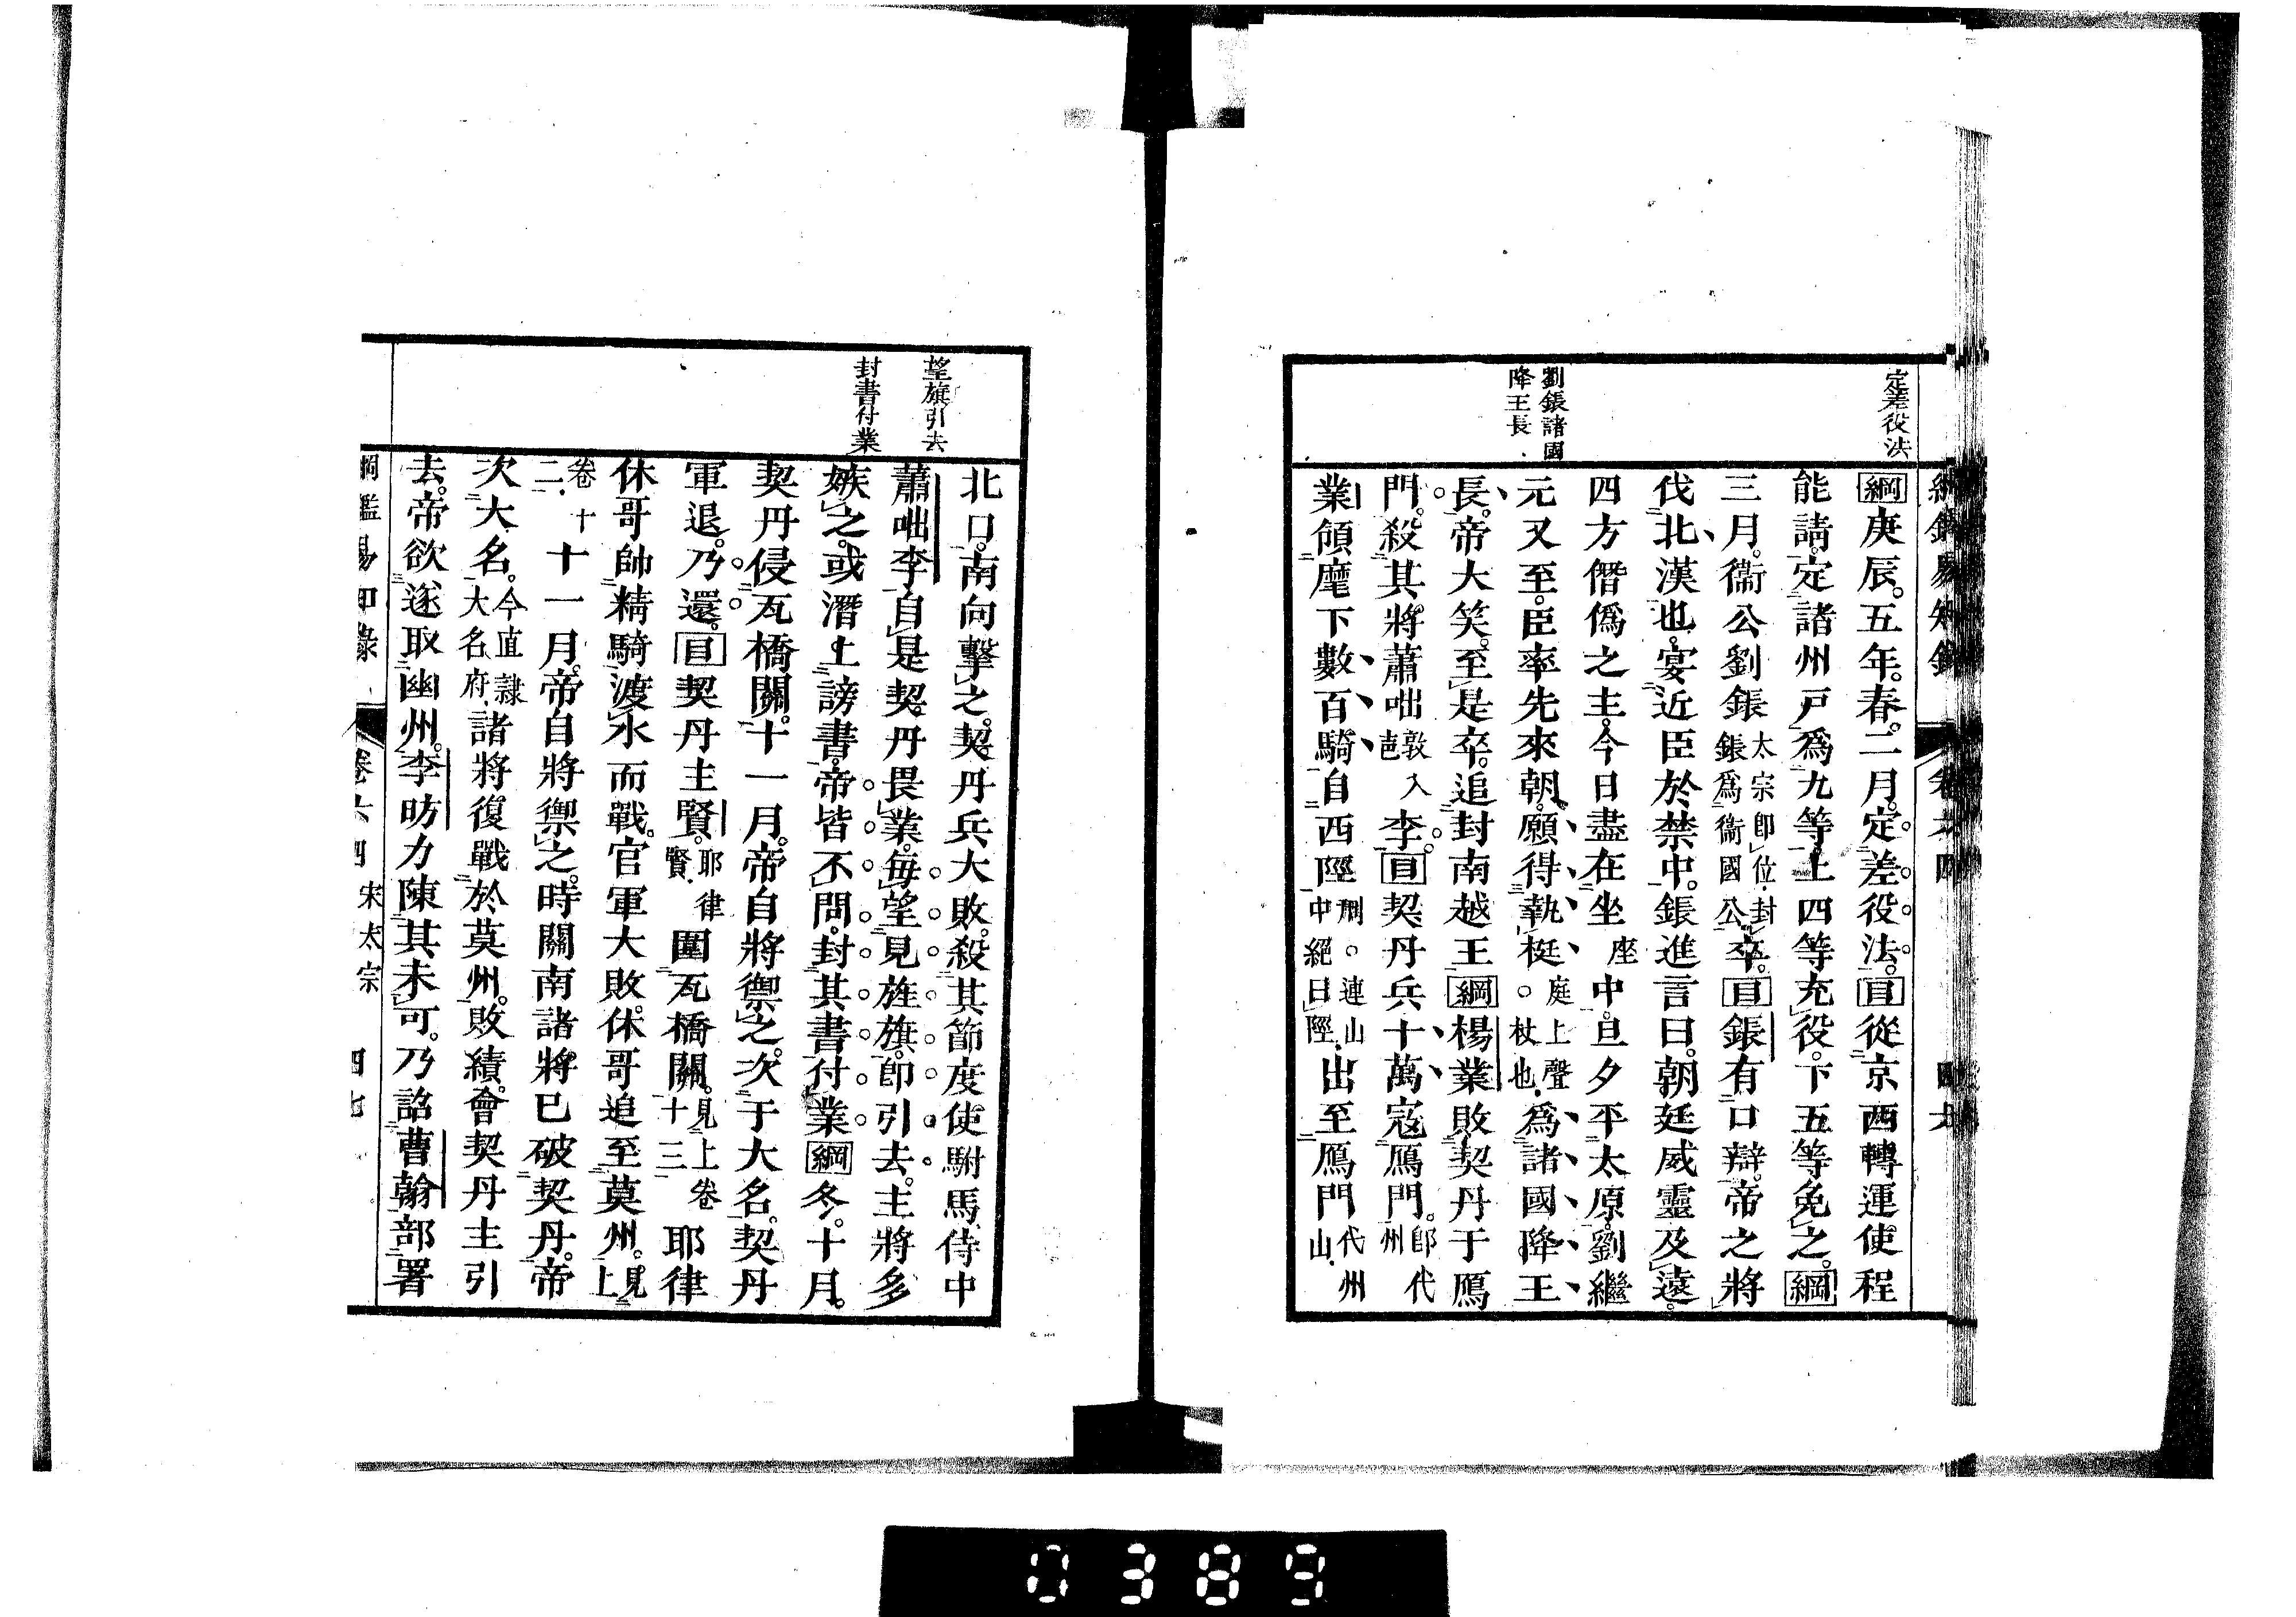 定差役法
劉鋹諸國
降王長
綱庚辰。五年。春。二月。定差役法。目從京西轉運使程
能請。定諸州戸爲九等。上四等充役。下五等免之。綱
三月。衞公劉鋹太宗卽位。封鋹爲衞國公。卒。目鋹有口辯。帝之將
伐北漢也。宴近臣於禁中。鋹進言曰。朝廷威靈及遠。
四方僭僞之主。今日盡在坐座中。旦夕平太原。劉繼
元又至。臣率先來朝。願得執梃庭上聲。杖也。爲諸國降王
長。帝大笑。至是卒。追封南越王綱楊業敗契丹于鴈
門。殺其將蕭咄敦入㐌李。目契丹兵十萬寇鴈門。卽代州
業領麾下數百騎自西陘刑。連山中絕曰陘。出至鴈門代州山。
望旗引去
封書付業
北口。南向擊之。契丹兵大敗。殺其節度使駙馬侍中
蕭咄李。自是契丹畏業。每望見旌旗。卽引去。主將多
嫉之。或潛上謗書。帝皆不問。封其書付業綱冬。十月。
契丹侵瓦橋關。十一月。帝自將禦之。次于大名。契丹
軍退。乃還。目契丹主賢。耶律賢。圍瓦橋關。見上卷十三耶律
休哥帥精騎渡水而戰。官軍大敗。休哥追至莫州。見上
卷十二。十一月。帝自將禦之。時關南諸將已破契丹。帝
次大名。今直隸大名府。諸將復戰於莫州。敗績。會契丹主引
去。帝欲遂取幽州。李昉力陳其未可。乃詔曹翰部署
綱鑑易知錄 卷六四 宋太宗 四七
0389